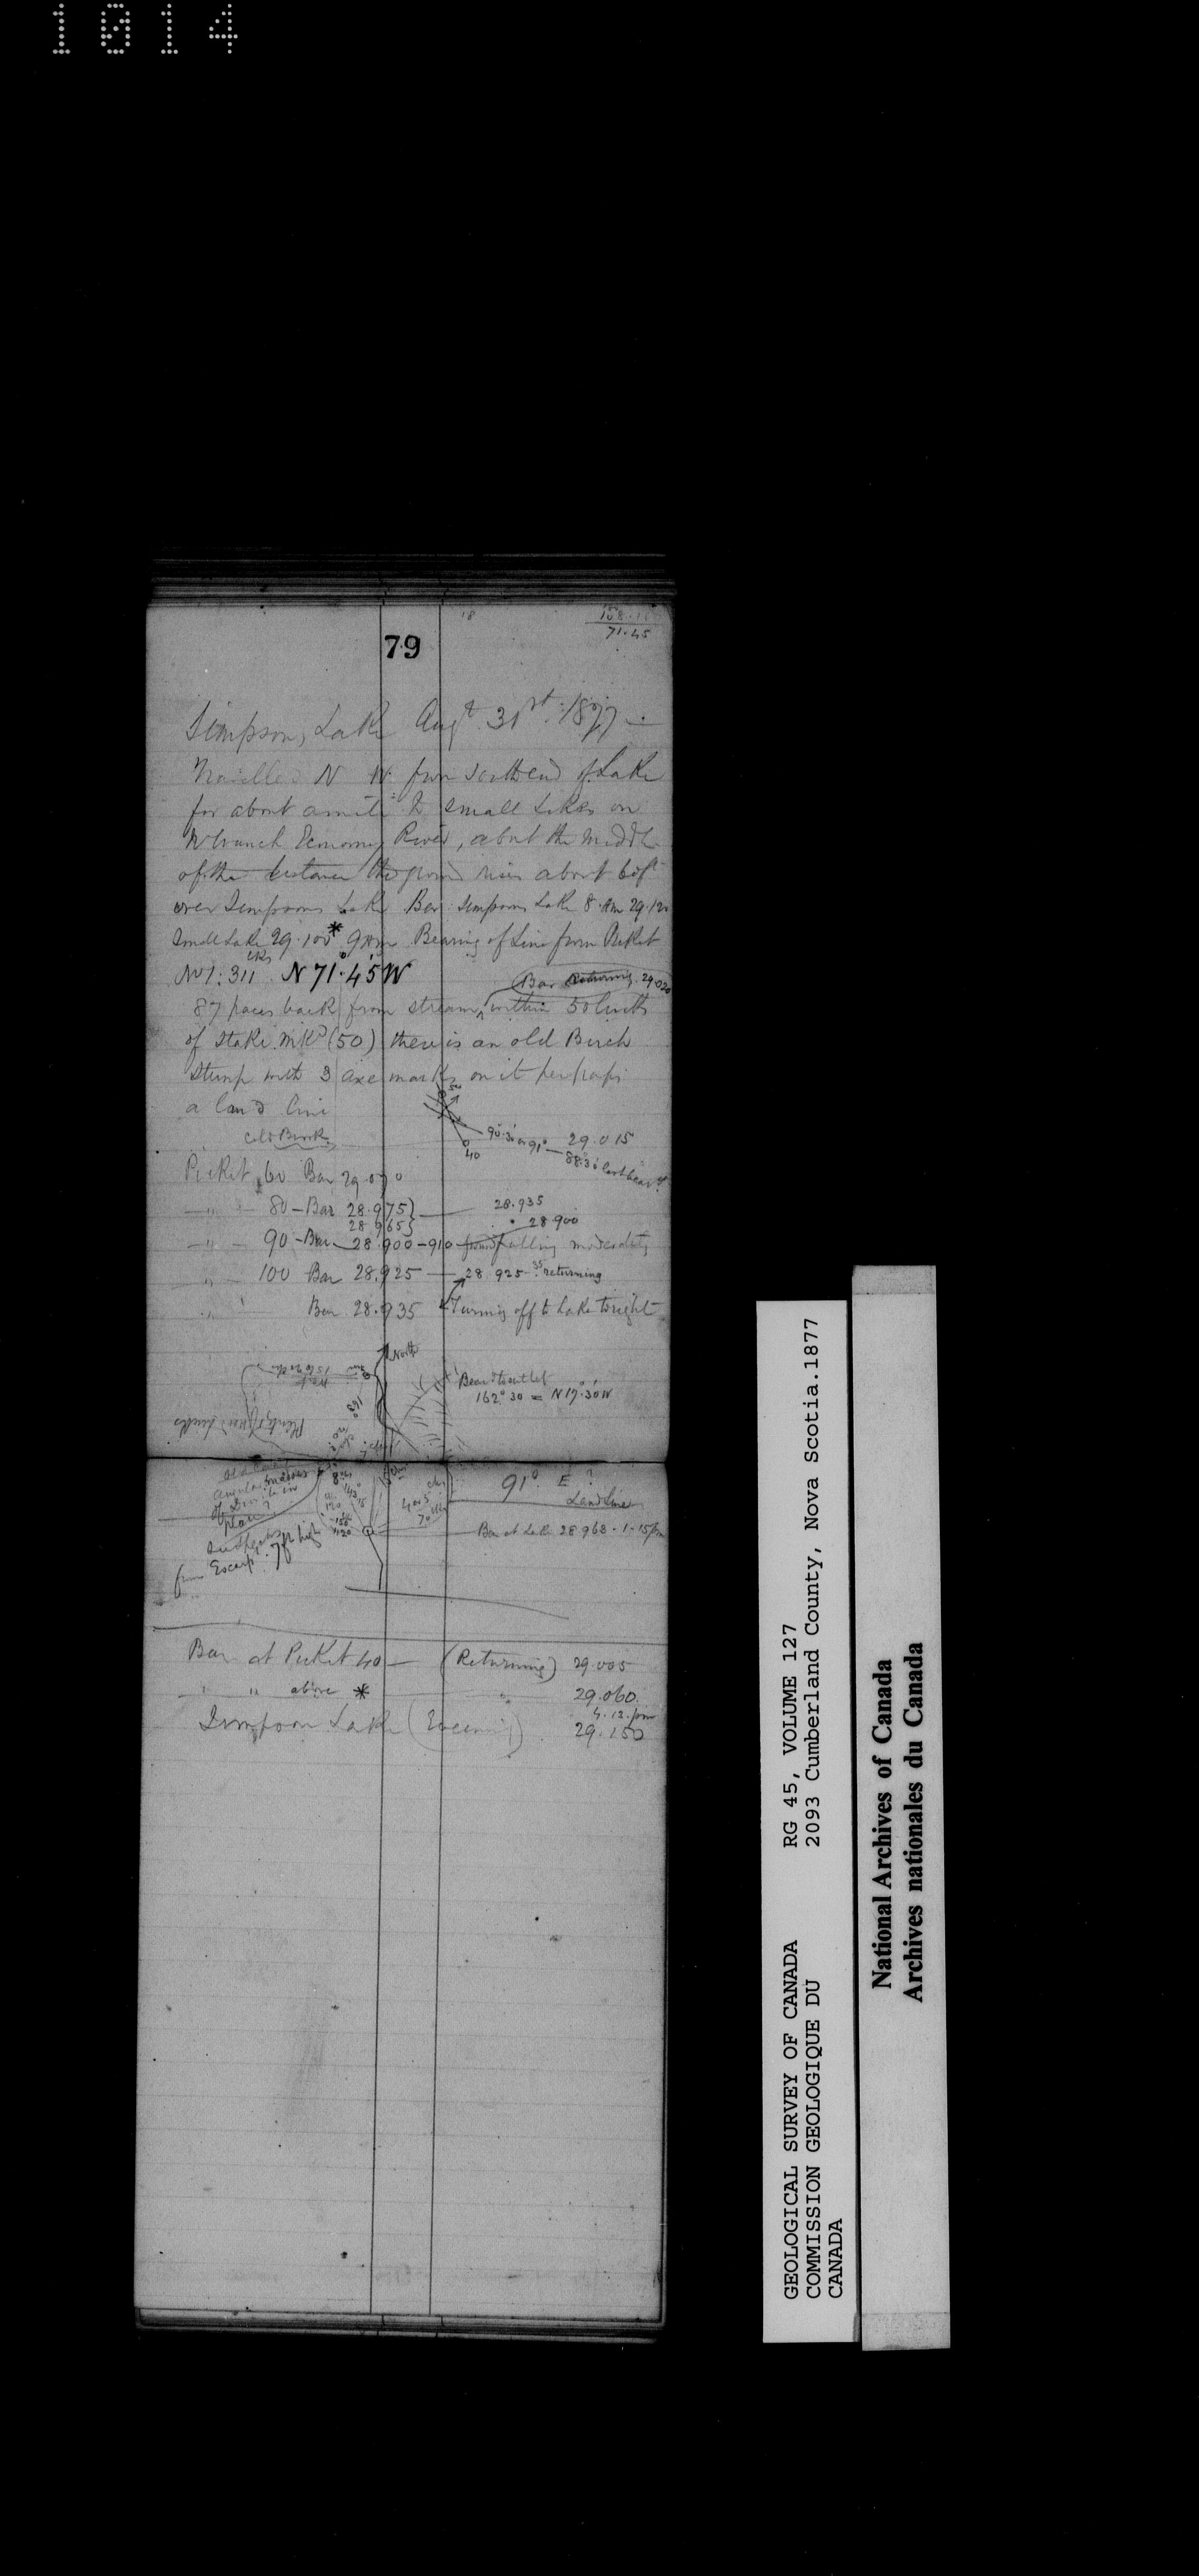 1014
79
18
71.45
Simpson, Lake Augt. 31st. 1877
Travelled N W. from South end of Lake
for about a mile to small Lakes on
W branch Economy River, about the middle
of the distance the ground rises about 60ft
over Simpsons Lake Bar. Simpsons Lake 8. AM 29.120
Small Lake 29.100* 9 AM. Bearing of Line from Picket
No 1: 311 lks N 71°.45'W
Bar Returning. 29.020
87 paces back from stream, within 50 links
of Stake. mkd (50) there is an old Birch
Stump with 3 axe marks on it perhaps
a land line
Cold Brook
90.30 or 91° 29.015
88.30 last
40
Picket 60 Bar 29.070
" 80 - Bar 28.975} 28.935
28.965} 28.900
" 90 - Bar 28.900-910 falling moderately
" 100 Bar 28.925 - 28.925 35 returning
" Bar 28.935 Turning off to Lake to right
North
Bear to outlet
162° 30 = N 17°.30'W
Plenty of
163°
91° E ?
Land Line
4 or 5
Bar at Lake 28.968 - 1-15 pm
angular masses
of
place?
from Escarpt. 7 ft high
Bar at Picket 40 - (Returning) 29.005
" " above * " 29.060
4.12. pm
Simpson Lake (Evening) 29.150
GEOLOGICAL SURVEY OF CANADA RG 45, VOLUME 127
COMMISSION GEOLOGIQUE DU 2093 Cumberland County, Nova Scotia.1877
CANADA
National Archives of Canada
Archives nationales du Canada